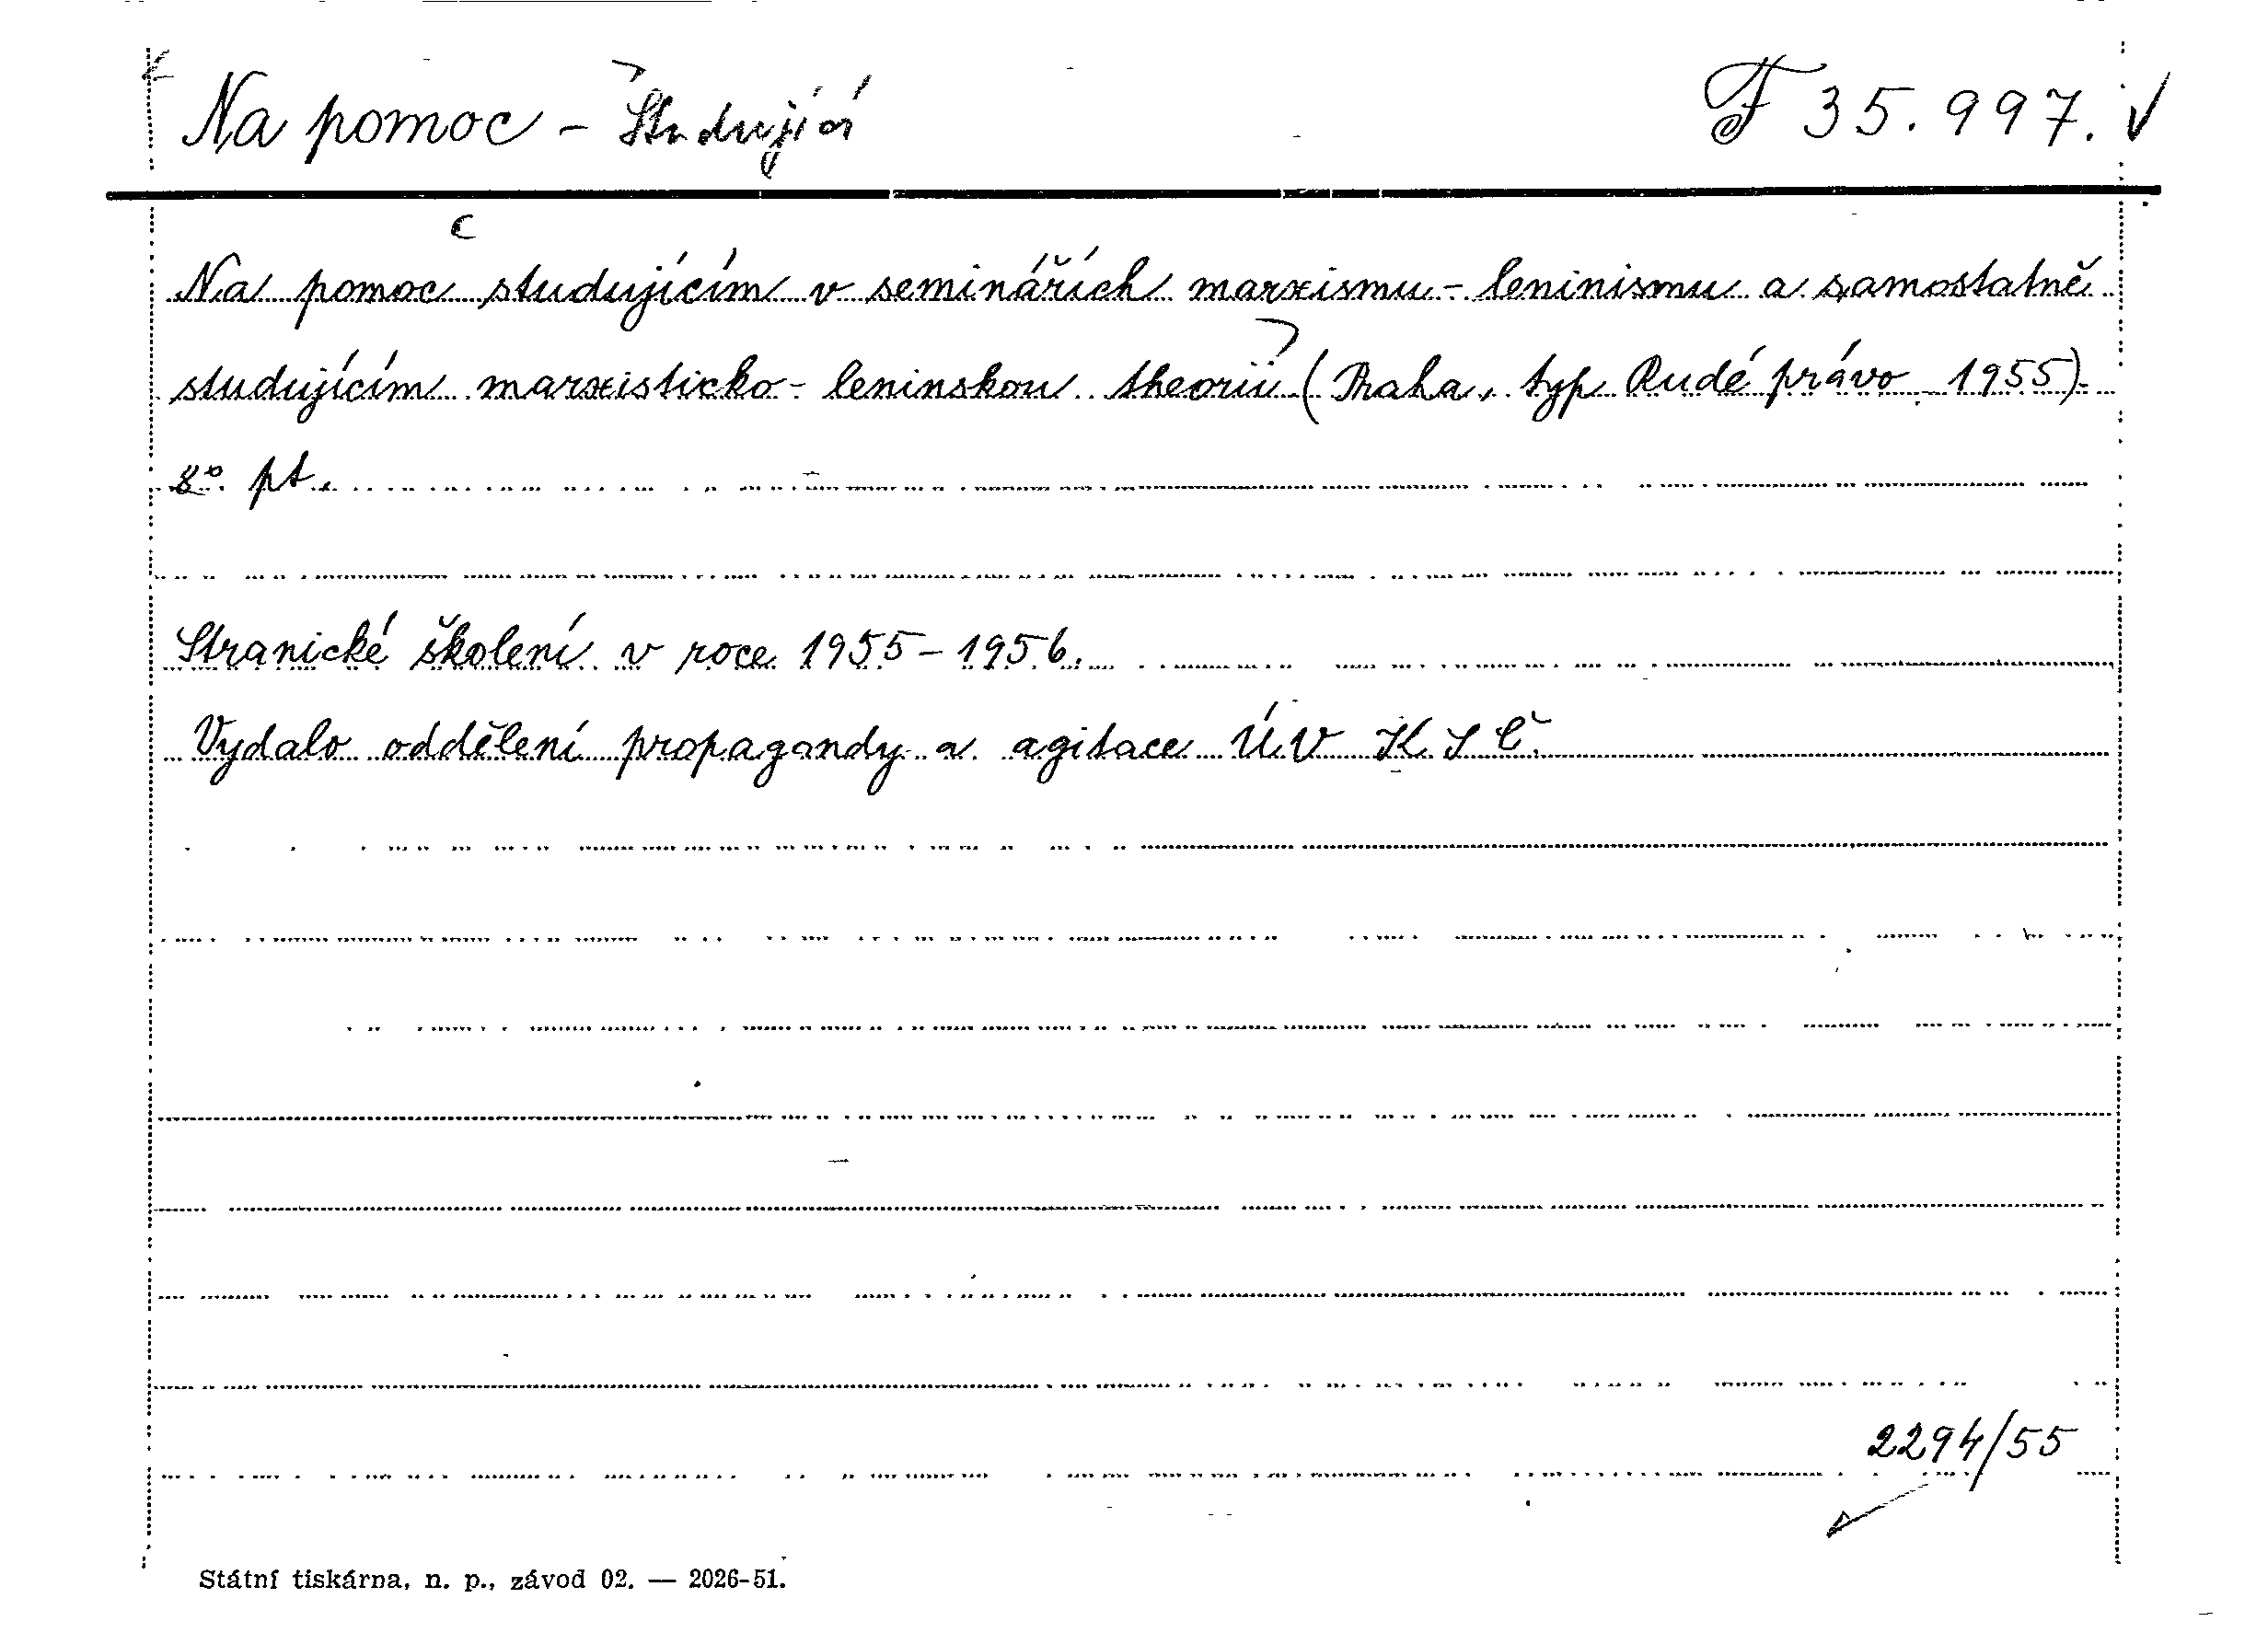 Na pomoc - Studující F 35.997.
Na pomoc studujícím v seminářích marxismu - leninismu a samostatně
studujícím marxisticko - leninskou theorii (Praha, typ Rudé právo 1955).
8° pt.
Stranické školení v roce 1955 - 1956.
Vydalo oddělení propagandy a agitace ÚV KSČ.
2294/55
Státní tiskárna, n. p., závod 02. — 2026-51.